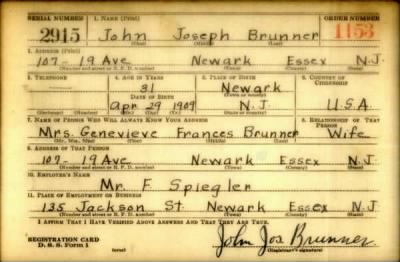 SERIAL NUMBER 1. NAME (Print) ORDER NUMBER
2915 John Joseph Brunner 1153
(First) (Middle) (Last)
2. ADDRESS (Print)
107 - 19 Ave Newark Essex N.J.
(Number and street or R. F. D. number) (Town) (County) (State)
3. TELEPHONE 4. AGE IN YEARS 5. PLACE OF BIRTH 6. COUNTRY OF CITIZENSHIP
31 Newark
DATE OF BIRTH (Town or county)
Apr 29 1909 N.J. U.S.A.
(Exchange) (Number) (Mo.) (Day) (Yr.) (State or country)
7. NAME OF PERSON WHO WILL ALWAYS KNOW YOUR ADDRESS 8. RELATIONSHIP OF THAT PERSON
Mrs. Genevieve Frances Brunner Wife
(Mr., Mrs., Miss) (First) (Middle) (Last)
9. ADDRESS OF THAT PERSON
107 - 19 Ave Newark Essex N.J.
(Number and street or R. F. D. number) (Town) (County) (State)
10. EMPLOYER'S NAME
Mr. F Spiegler
11. PLACE OF EMPLOYMENT OR BUSINESS
135 Jackson St. Newark Essex N.J.
(Number and street or R. F. D. number) (Town) (County) (State)
I AFFIRM THAT I HAVE VERIFIED ABOVE ANSWERS AND THAT THEY ARE TRUE.
REGISTRATION CARD
D. S. S. Form 1 (over) John Jos Brunner
(Registrant's signature)